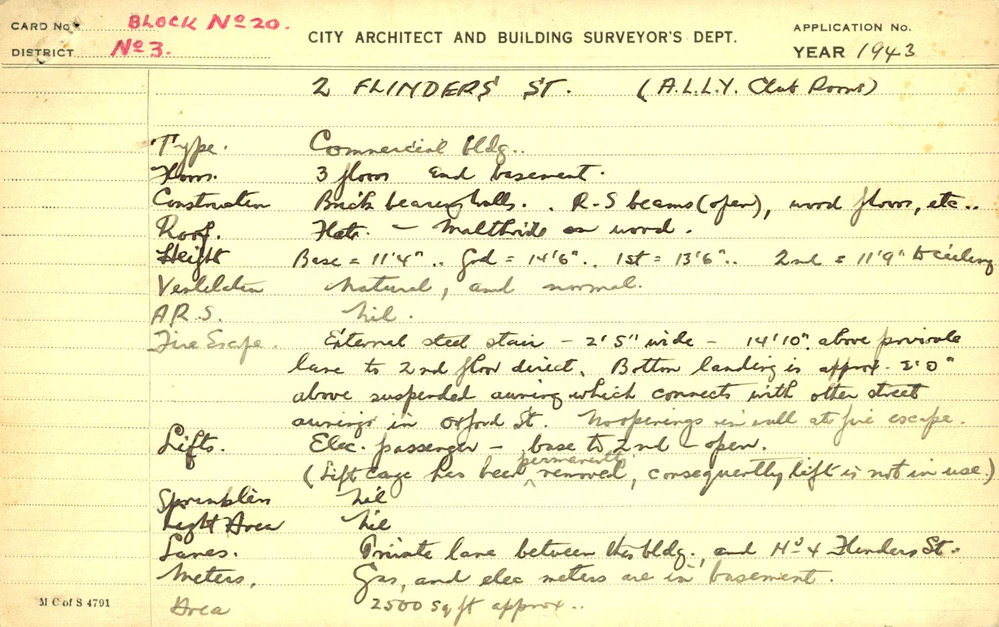 CARD No. BLOCK No 20.
DISTRICT No 3.
CITY ARCHITECT AND BUILDING SURVEYOR'S DEPT.
APPLICATION No.
YEAR 1943
2 FLINDERS ST. (A.L.L.Y. Club Rooms)
Type. Commercial bldg..
Floors. 3 floors and basement.
Construction Brick bearing walls. . R-S beams (open), wood floors, etc..
Roof. Flat. - Malthoid on wood.
Height Base = 11'4" .. Grd = 14'6" .. 1st = 13'6" .. 2nd = 11'9" to ceiling
Ventilation Natural, and normal.
A.R.S. Nil.
Fire Escape. External steel stair - 2'5" wide - 14'10" above private
lane to 2nd floor direct. Bottom landing is approx. 2'0"
above suspended awning which connects with other street
awnings in Oxford St. No openings in wall at fire escape.
Lifts. Elec. passenger - base to 2nd - open.
(Lift cage has been permanently removed, consequently lift is not in use.)
Sprinklers Nil
Light Area Nil
Lanes. Private lane between this bldg., and No 4 Flinders St.
Meters. Gas, and elec meters are in basement.
Area 2500 sq ft approx..
M C of S 4791